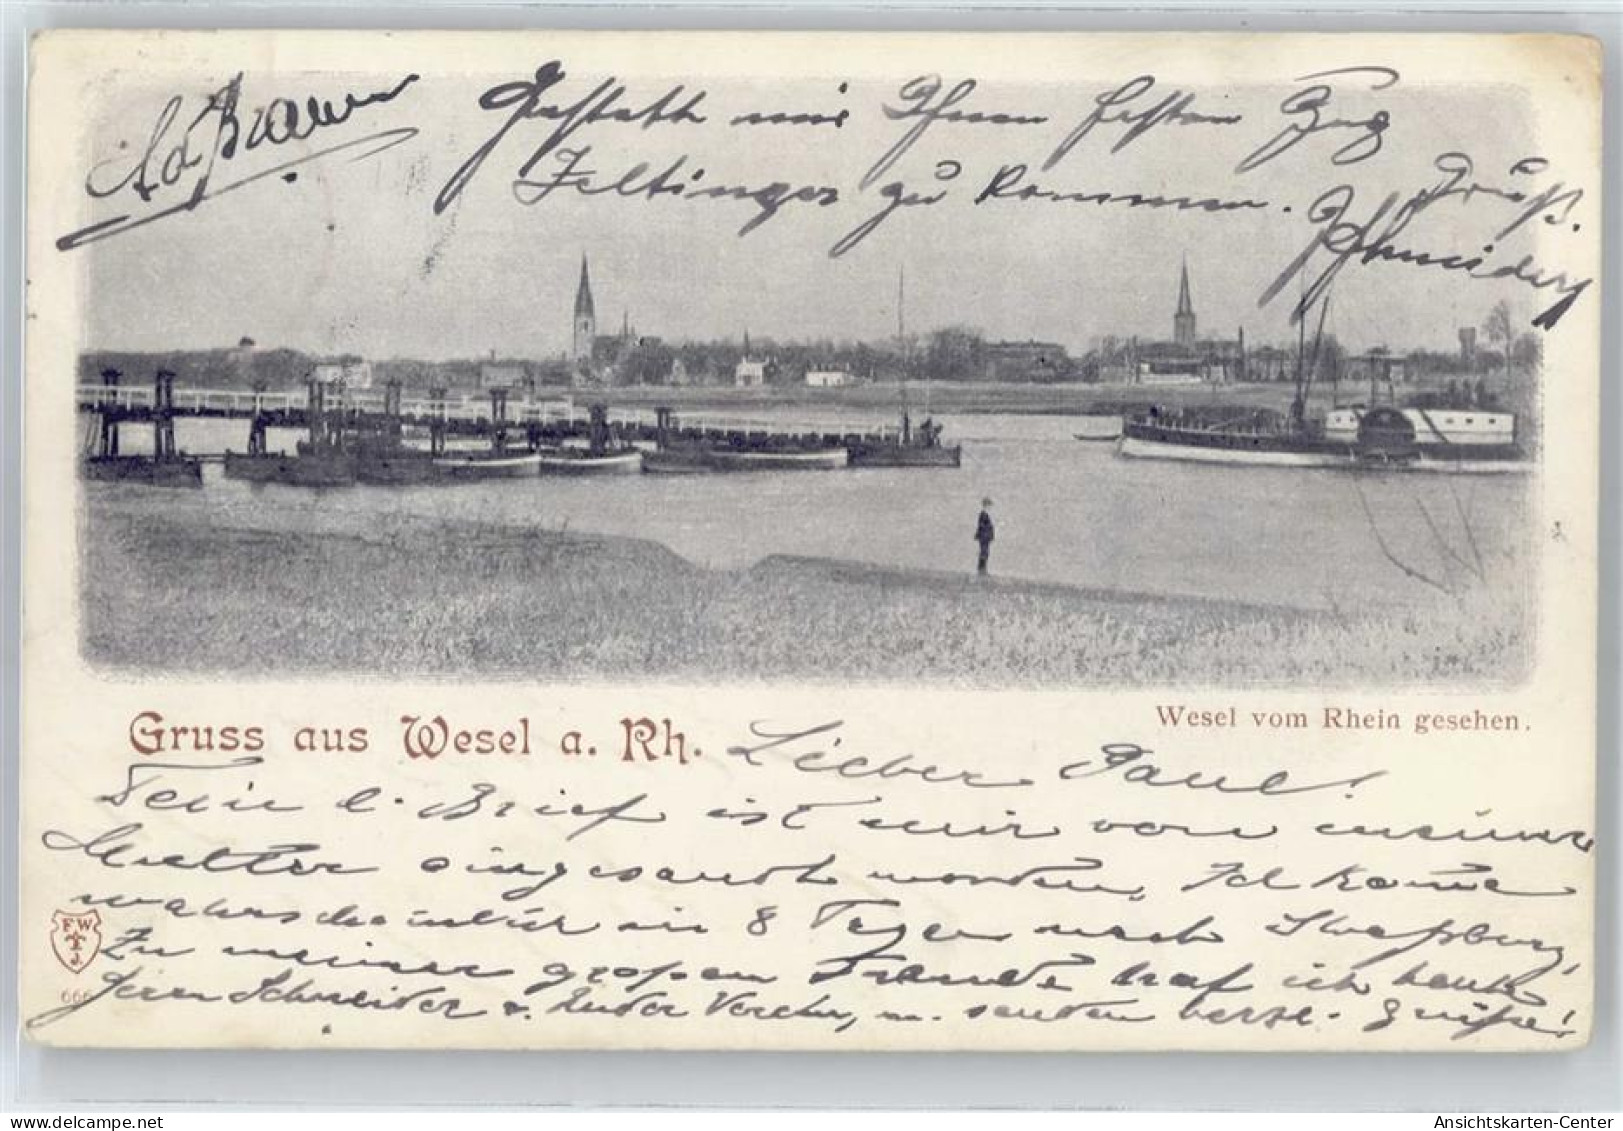 Ad Braun
Gestatte mir Ihnen festen Zug
Zeltinger zu kommen. Gruß.
Schneider
Gruss aus Wesel a. Rh.
Wesel vom Rhein gesehen.
Lieber Paul!
Dein l. Brief ist mir von meiner
Mutter eingesandt worden, Ich komme
wahrscheinlich in 8 Tagen nach Straßburg,
Zu meiner großen Freude traf ich heute
Herrn Schneider u. senden herzl. Grüße!
F W
J.
666
delcampe.net
Ansichtskarten-Center